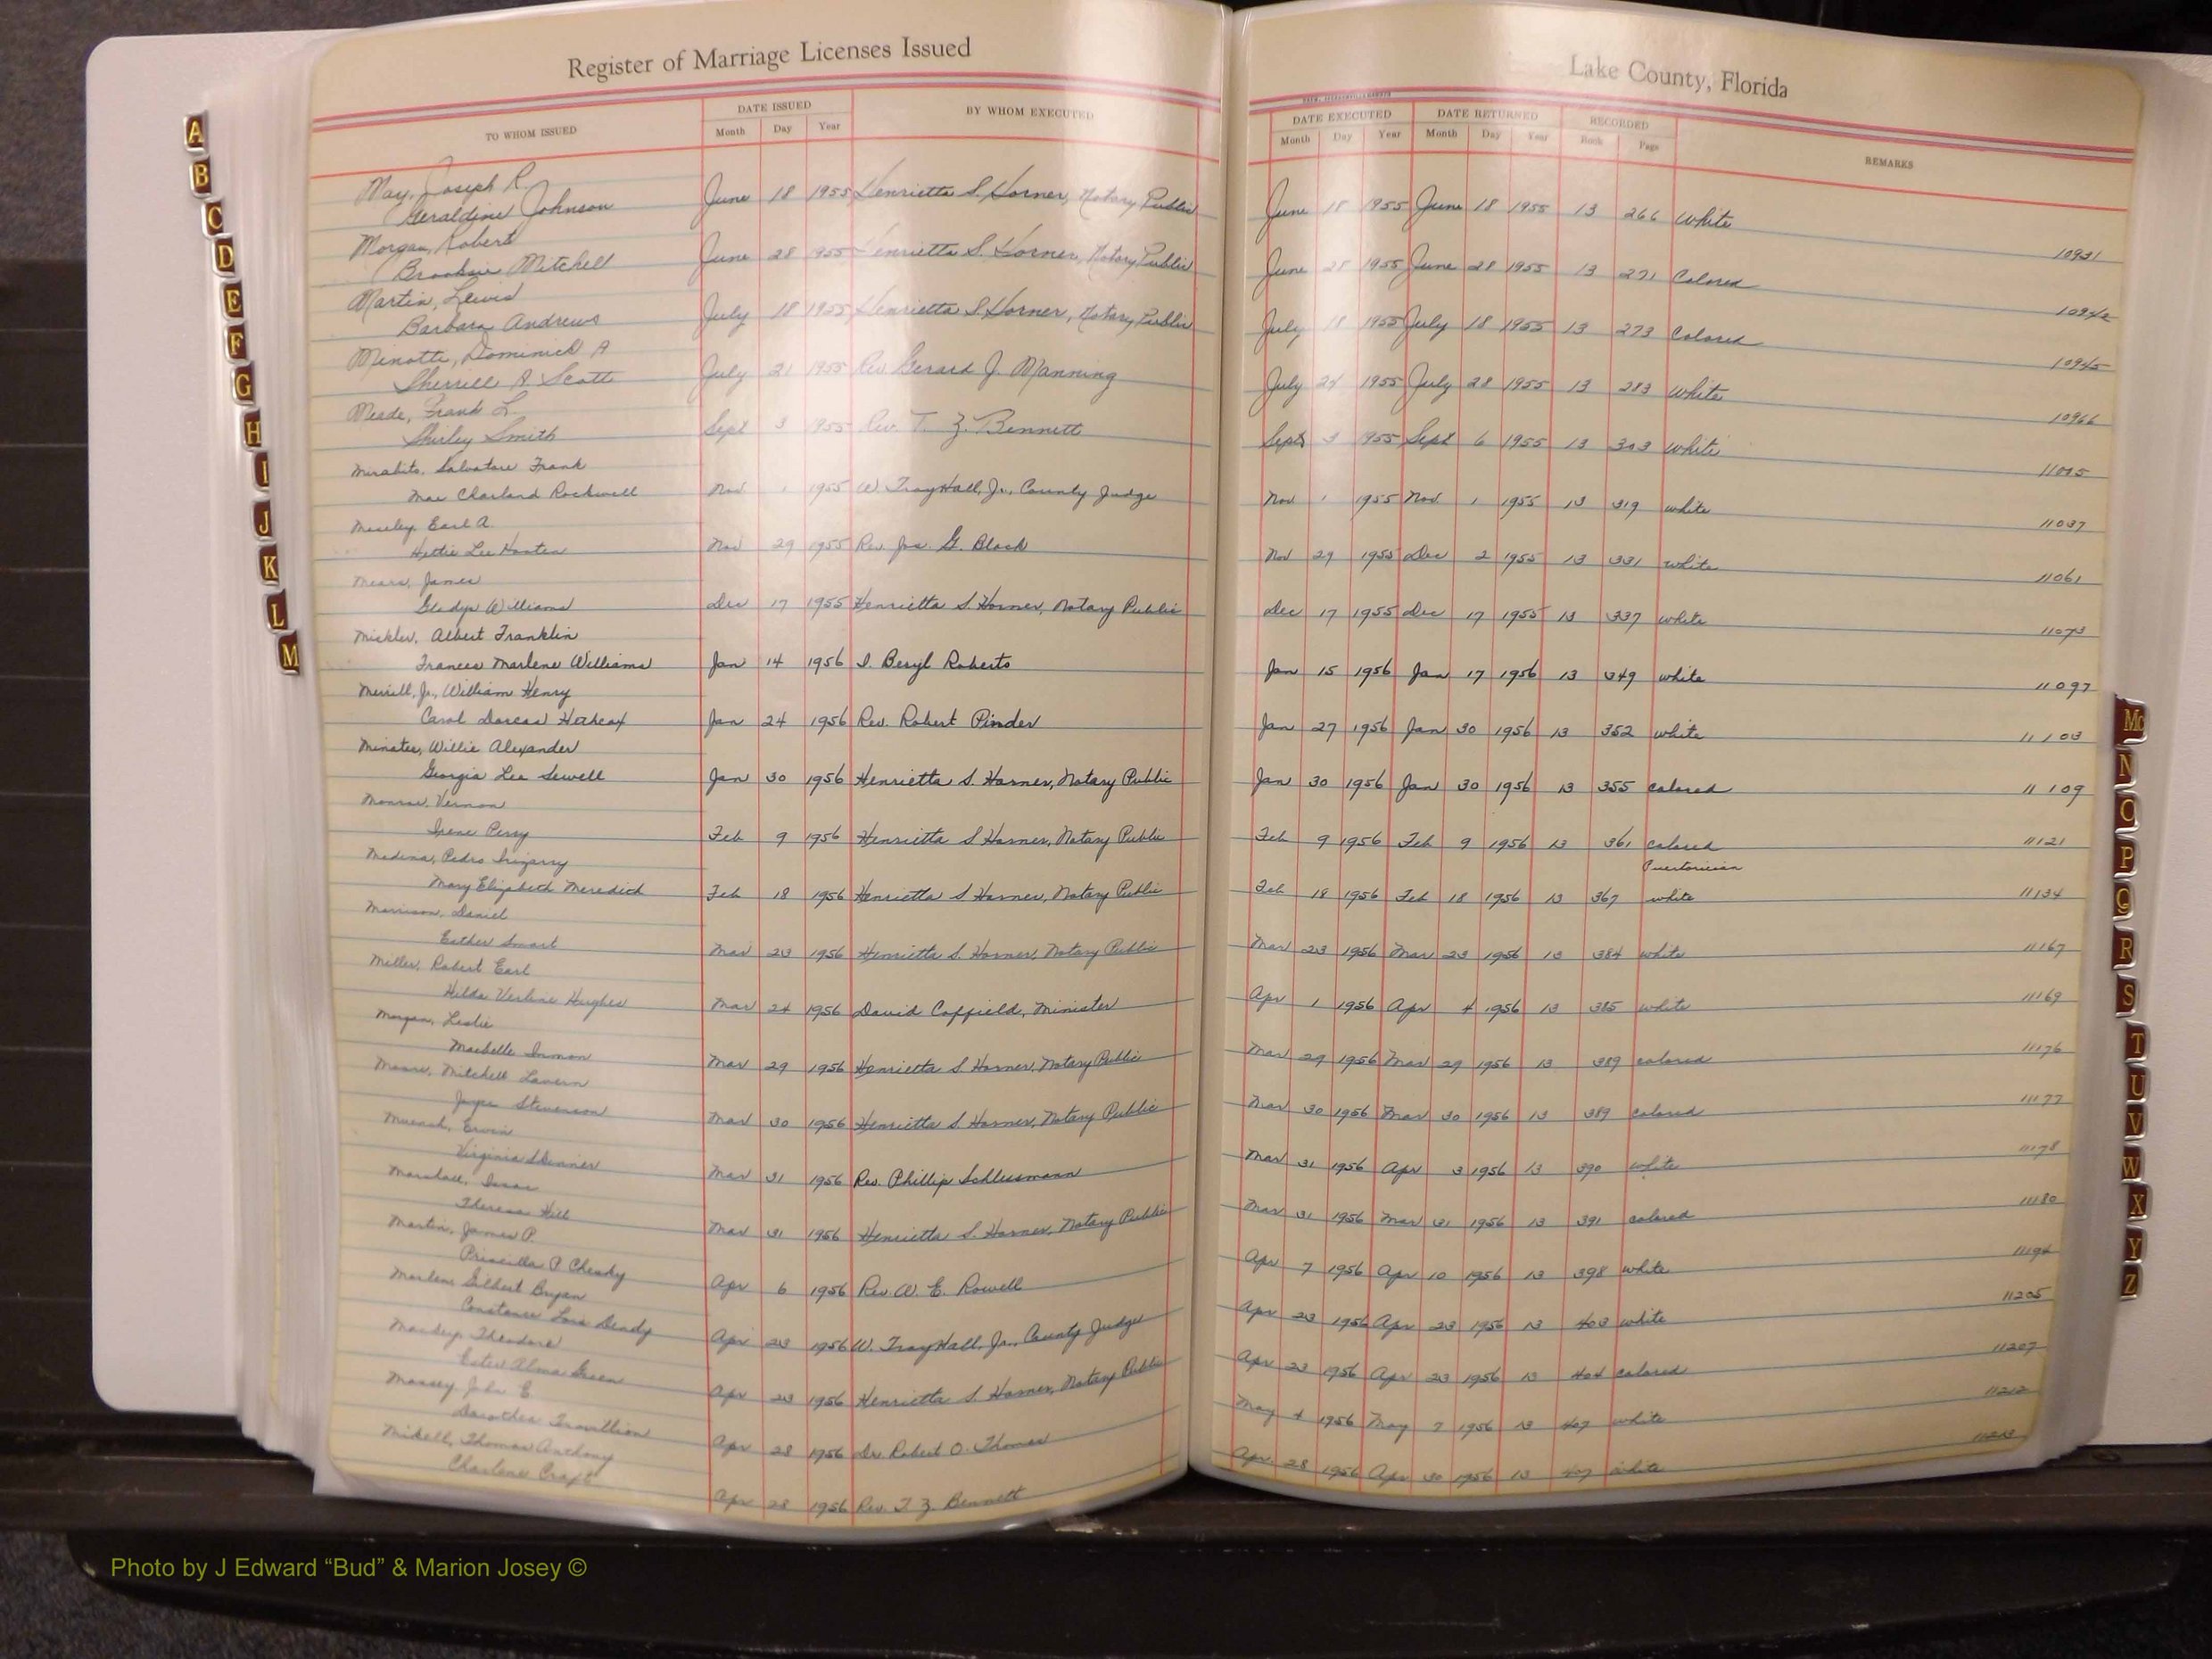 Register of Marriage Licenses Issued
Lake County, Florida
TO WHOM ISSUED DATE ISSUED BY WHOM EXECUTED DATE EXECUTED DATE RETURNED RECORDED REMARKS
Month Day Year Month Day Year Month Day Year Book Page
May, Joseph R.
Geraldine Johnson June 18 1955 Henrietta S. Horner, Notary Public June 18 1955 June 18 1955 13 266 White 10931
Morgan, Robert
Mitchell June 28 1955 Henrietta S. Horner, Notary Public June 28 1955 June 28 1955 13 271 Colored 10942
Martin, Lewis
Barbara Andrews July 18 1955 Henrietta S. Horner, Notary Public July 18 1955 July 18 1955 13 273 Colored 10945
Minotte, Dominick A
Sherrill A. Scott July 21 1955 Rev. Gerard J. Manning July 24 1955 July 28 1955 13 283 White 10966
Meede, Frank L.
Shirley Smith Sept 3 1955 Rev. T. Z. Bennett Sept 3 1955 Sept 6 1955 13 303 White
Mirabito, Salvatore Frank
Mae Charland Rockwell Nov 1 1955 W. Troy Hall, Jr., County Judge Nov 1 1955 Nov 1 1955 13 319 white 11037
Earl A.
Hettie Lee Nov 29 1955 Rev. Jas. G. Black Nov 29 1955 Dec 2 1955 13 331 white 11061
Mears, James
Gladys Williams Dec 17 1955 Henrietta S. Horner, Notary Public Dec 17 1955 Dec 17 1955 13 337 white 11073
Mickler, Albert Franklin
Frances Marlene Williams Jan 14 1956 I. Beryl Roberts Jan 15 1956 Jan 17 1956 13 349 white 11097
Merrill, Jr., William Henry
Carol Dorcas Hathcox Jan 24 1956 Rev. Robert Pinder Jan 27 1956 Jan 30 1956 13 352 white 11103
Minster, Willie Alexander
Georgia Lee Sewell Jan 30 1956 Henrietta S. Horner, Notary Public Jan 30 1956 Jan 30 1956 13 355 colored 11109
Monroe, Vernon
Irene Perry Feb 9 1956 Henrietta S Horner, Notary Public Feb 9 1956 Feb 9 1956 13 361 colored 11121
Medina, Pedro Irizarry Puertorician
Mary Elizabeth Meredith Feb 18 1956 Henrietta S Horner, Notary Public Feb 18 1956 Feb 18 1956 13 367 white 11134
Morrison, Daniel
Esther Smart Mar 23 1956 Henrietta S. Horner, Notary Public Mar 23 1956 Mar 23 1956 13 384 white 11167
Miller, Robert Earl
Hilda Verline Hughes Mar 24 1956 David Coffield, Minister Apr 1 1956 Apr 4 1956 13 385 white 11169
Morgan, Leslie
Maebelle Inmon Mar 29 1956 Henrietta S Horner, Notary Public Mar 29 1956 Mar 29 1956 13 389 colored 11176
Moore, Mitchell Lavern
Joyce Stevenson Mar 30 1956 Henrietta S. Horner, Notary Public Mar 30 1956 Mar 30 1956 13 389 colored 11177
Muench, Erwin
Virginia Skinner Mar 31 1956 Rev. Phillip Schlessmann Mar 31 1956 Apr 3 1956 13 390 white 11178
Marshall, Isaac
Theresa Hill Mar 31 1956 Henrietta S. Horner, Notary Public Mar 31 1956 Mar 31 1956 13 391 colored 11180
Martin, James P.
Priscilla P. Chesky Apr 6 1956 Rev. W. E. Rowell Apr 7 1956 Apr 10 1956 13 398 white 11194
Gilbert Bryan
Constance Lois Dendy Apr 23 1956 W. Troy Hall, Jr., County Judge Apr 23 1956 Apr 23 1956 13 403 white 11205
Theodore
Ester Alma Green Apr 23 1956 Henrietta S Horner, Notary Public Apr 23 1956 Apr 23 1956 13 404 colored 11207
Massey, John E.
Dorothea Trovillion Apr 28 1956 Dr Robert O. Thomas May 4 1956 May 7 1956 13 407 white 11212
Mikell, Thomas Anthony
Charlene Craft Apr 28 1956 Rev. T Z. Bennett Apr 28 1956 Apr 30 1956 13 407 white 11213
A
B
C
D
E
F
G
H
I
J
K
L
M
Mc
N
O
P
Q
R
S
T
U
V
W
X
Y
Z
Photo by J Edward “Bud” & Marion Josey ©